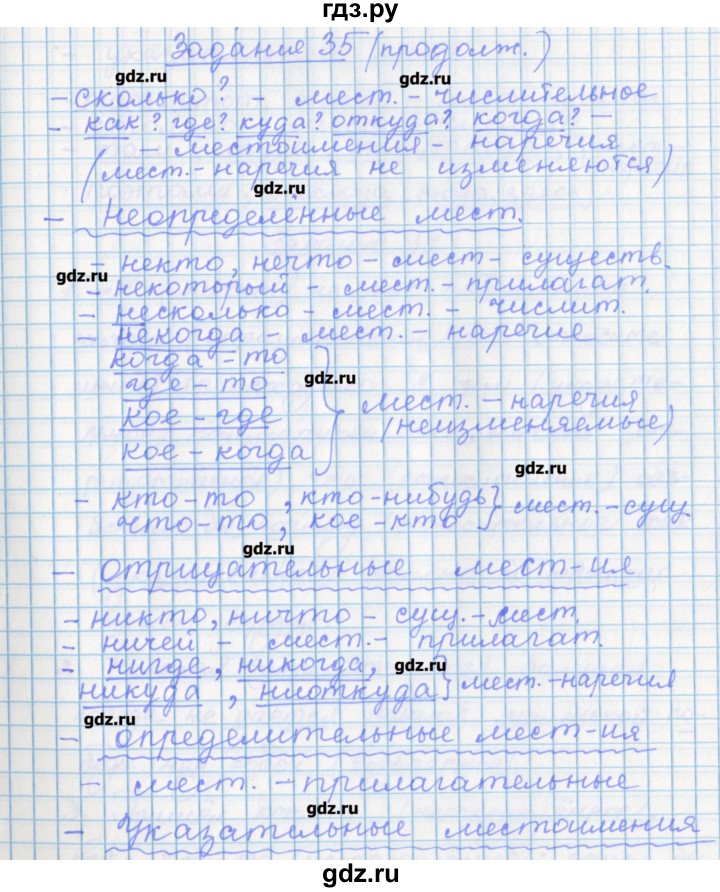 гдз.ру
Задание 35 (продолж.)
gdz.ru gdz.ru
– сколько? – мест. – числительное
– как? где? куда? откуда? когда? –
– местоимения – наречия
(мест. – наречия не изменяются)
gdz.ru
– Неопределённые мест.
– некто, нечто – мест – существ.
gdz.ru
– некоторый – мест. – прилагат.
– несколько – мест. – числит.
– некогда – мест. – наречие
когда – то
где – то
gdz.ru
кое – где
кое – когда
мест. – наречия
(неизменяемые)
gdz.ru
– кто – то, кто – нибудь
что – то, кое – кто } мест. – сущ.
gdz.ru
– Отрицательные мест – ия
– никто, ничто – сущ. – мест.
– ничей – мест. – прилагат.
– нигде, никогда,
gdz.ru
никуда, ниоткуда } мест. – наречия
gdz.ru
– определительные мест – ия
– мест. – прилагательные
gdz.ru
– Указательные местоимения
gdz.ru